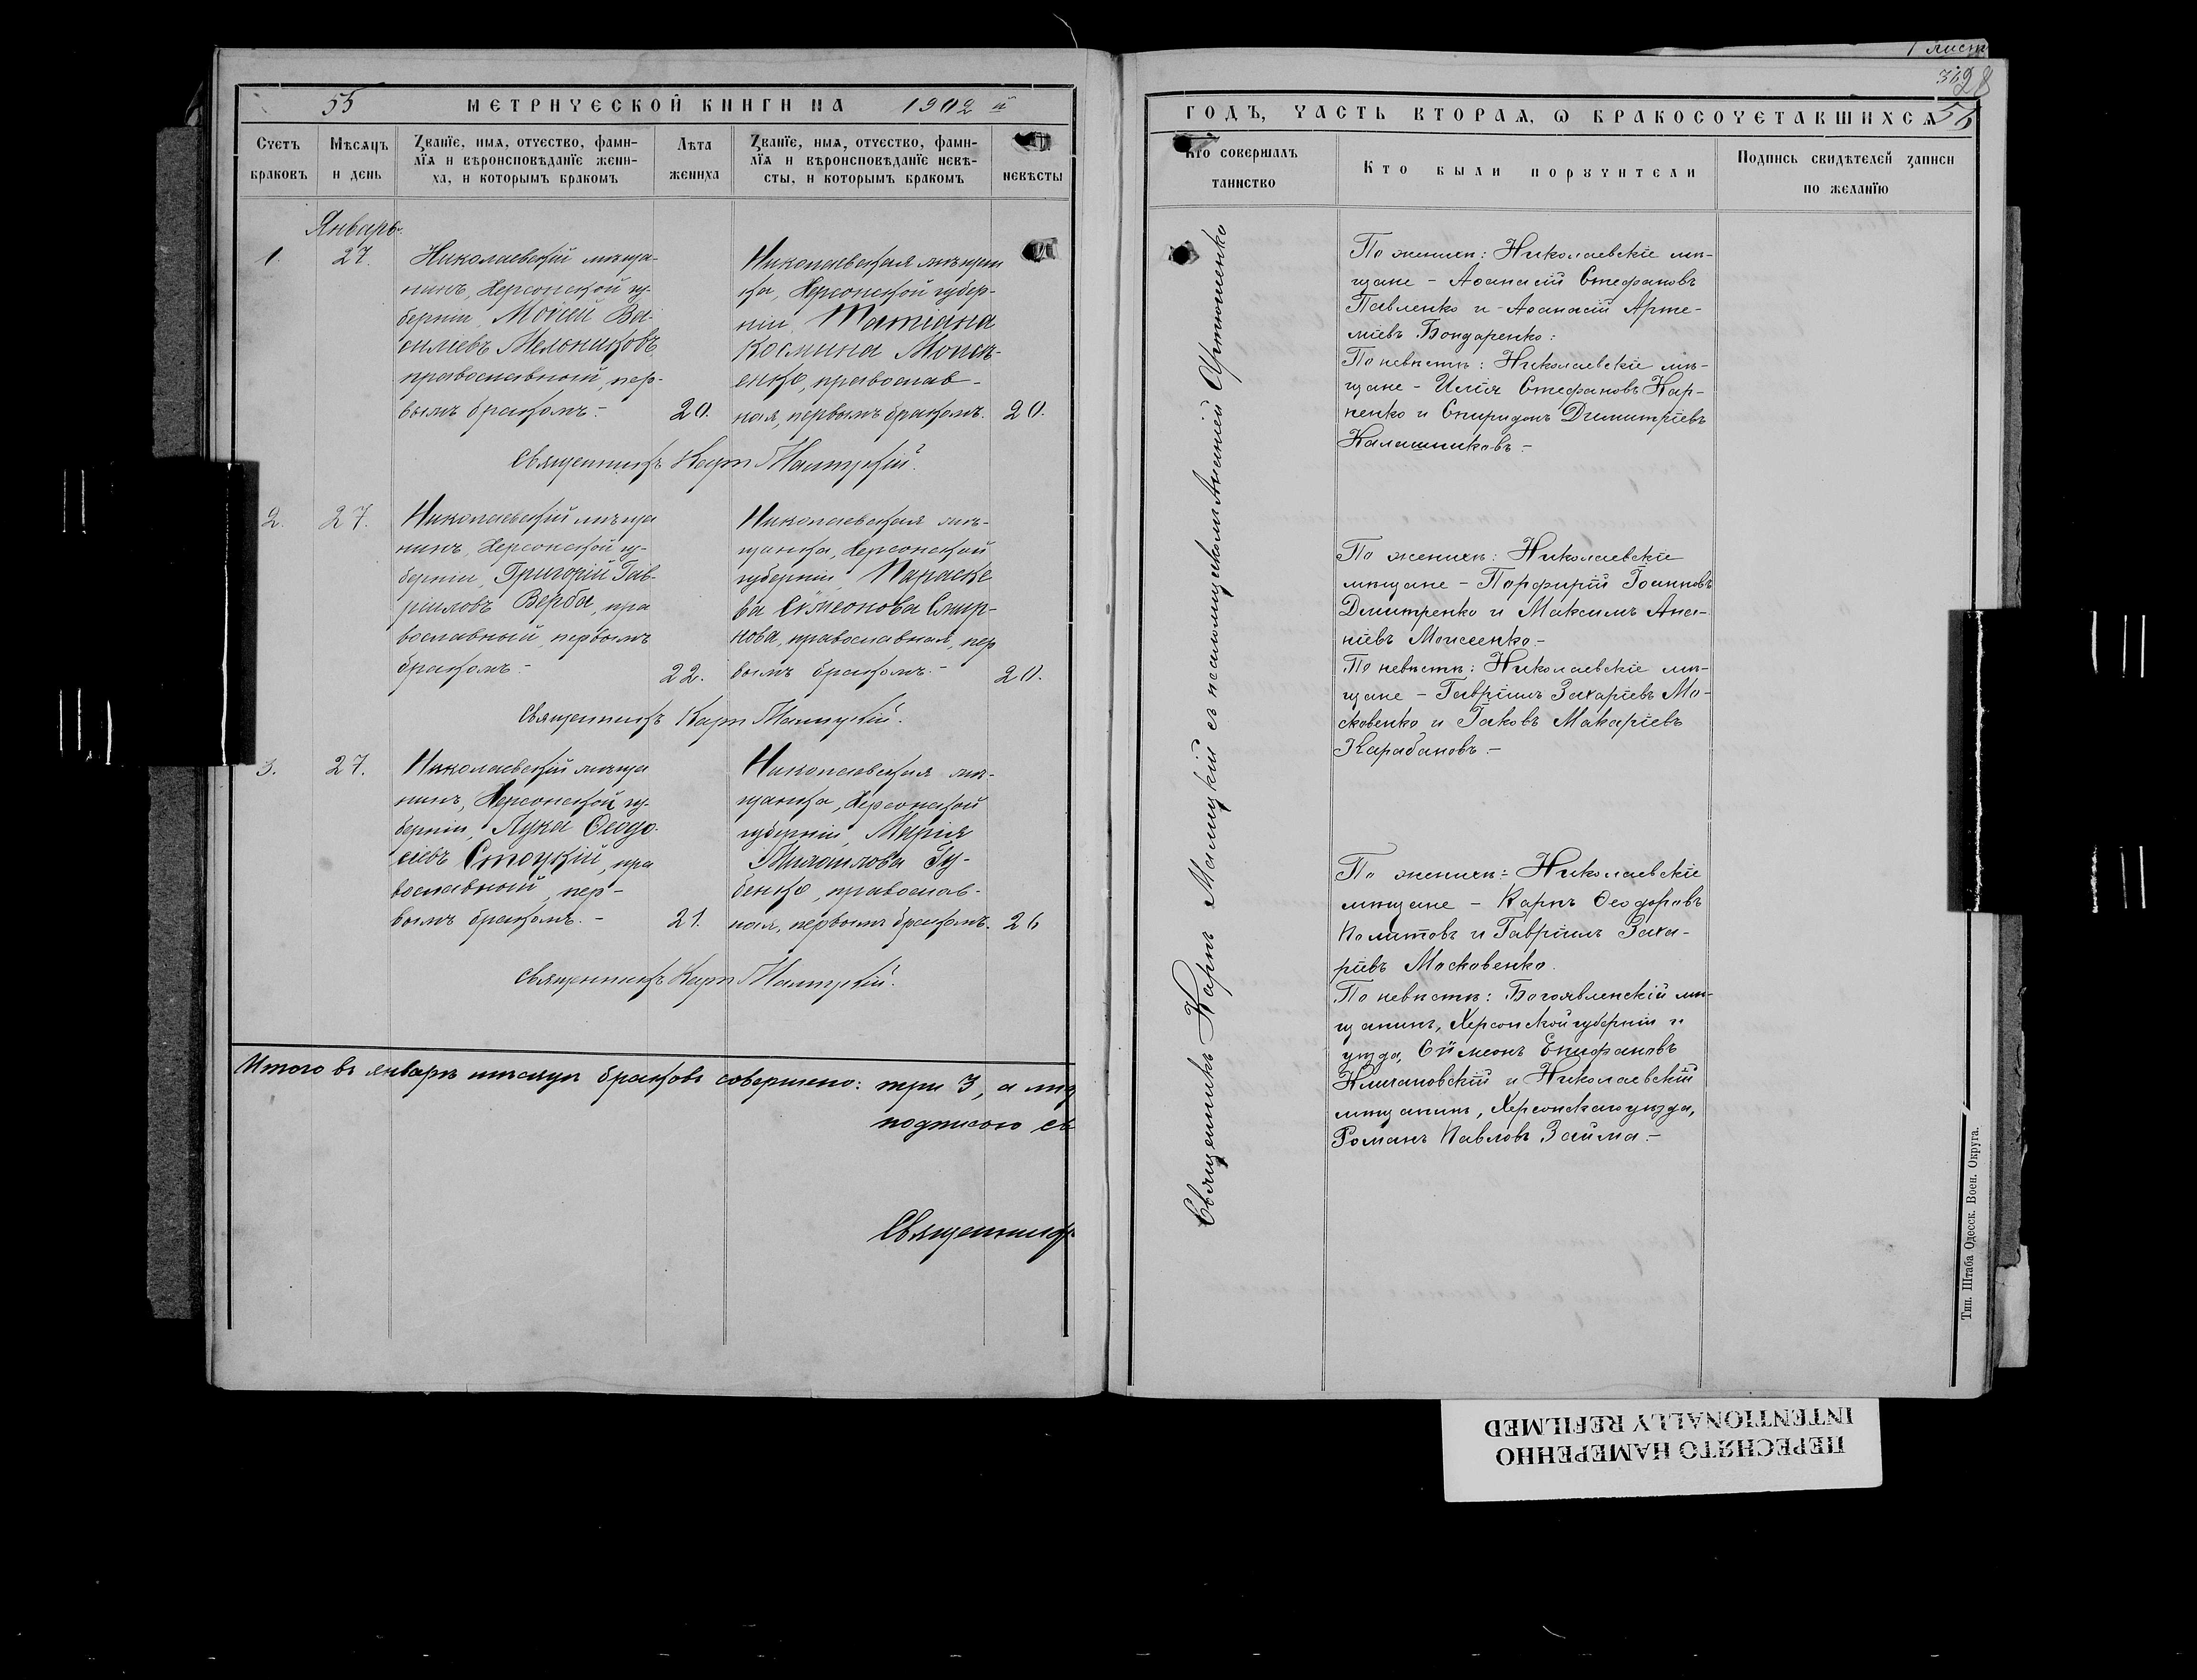 55 МЕТРИЧЕСКОЙ КНИГИ НА 1902 й
Счетъ браковъ
Мѣсяцъ и день
Званїе, имя, отчество, фами-
лїя и вѣроисповѣданїе жени-
ха, и которымъ бракомъ
Лѣта
жениха
Званїе, имя, отчество, фами-
лїя и вѣроисповѣданїе невѣ-
сты, и которымъ бракомъ
невѣсты
Январь.
1.
27.
Николаевскій мѣща-
нинъ, Херсонской гу-
берніи, Моисей Ва-
силіевъ Мельниковъ,
православный, пер-
вымъ бракомъ.-
20.
Николаевская мѣщан
ка, Херсонской губер-
ніи, Татіана
Космина Моисе-
енко, православ-
ная, первымъ бракомъ.
20.
Священникъ Карп Малицкій.
2.
27.
Николаевскій мѣща
нинъ, Херсонской гу-
берніи, Григорій Гав-
ріиловъ Верба, пра
вославный, первымъ
бракомъ.-
22.
Николаевская мѣ-
щанка, Херсонской
губерніи Параске
ва Сѵмеонова Смир-
нова, православная, пер
вымъ бракомъ.-
20.
Священникъ Карп Малицкій.
3.
27.
Николаевскій мѣща
нинъ, Херсонской гу-
берніи, Лука Ѳеодо-
сіевъ Стоцкій, пра
вославный, пер-
вымъ бракомъ.-
21.
Николаевская мѣ-
щанка, Херсонской
губерніи, Марія
Михаилова Гу-
бенко, православ-
ная, первымъ бракомъ.
26
Священникъ Карп Малицкій.
Итого въ январѣ мѣсяцѣ браковъ совершено: три 3, а
подписомъ
Священникъ
1 лист
28
ГОДЪ, ЧАСТЬ ВТОРАЯ, Ѡ БРАКОСОЧЕТАВШИХСЯ 56
Кто совершалъ
таинство
Кто были поручители
Подпись свидѣтелей записи
по желанїю
Священникъ Карпъ Малицкій съ псаломщикомъ Ананіей Артюшенко
По женихѣ: Николаевскіе мѣ-
щане - Аѳанасій Стефановъ
Павленко и Аѳанасій Арте-
міевъ Бондаренко:
По невѣстѣ: Николаевскіе мѣ-
щане - Илія Стефановъ Кар-
пенко и Спиридонъ Димитріевъ
Калашниковъ.-
По женихѣ: Николаевскіе
мѣщане - Порфирій Іоанновъ
Дмитренко и Максимъ Ана-
ніевъ Моисеенко.-
По невѣстѣ: Николаевскіе мѣ-
щане - Гавріилъ Захаріевъ Мо-
сковенко и Іаковъ Макаріевъ
Карабановъ.-
По женихѣ: Николаевскіе
мѣщане - Карпъ Ѳеодоровъ
Политовъ и Гавріилъ Заха-
ріевъ Московенко.
По невѣстѣ: Богоявленскій мѣ-
щанинъ, Херсонской губерніи и
уѣзда, Сѵмеонъ Епифановъ
Климановскій и Николаевскій
мѣщанинъ, Херсонскаго уѣзда,
Романъ Павловъ Займа.-
Тип. Штаба Одесск. Воен. Округа.
ПЕРЕСНЯТО НАМЕРЕННО
INTENTIONALLY REFILMED